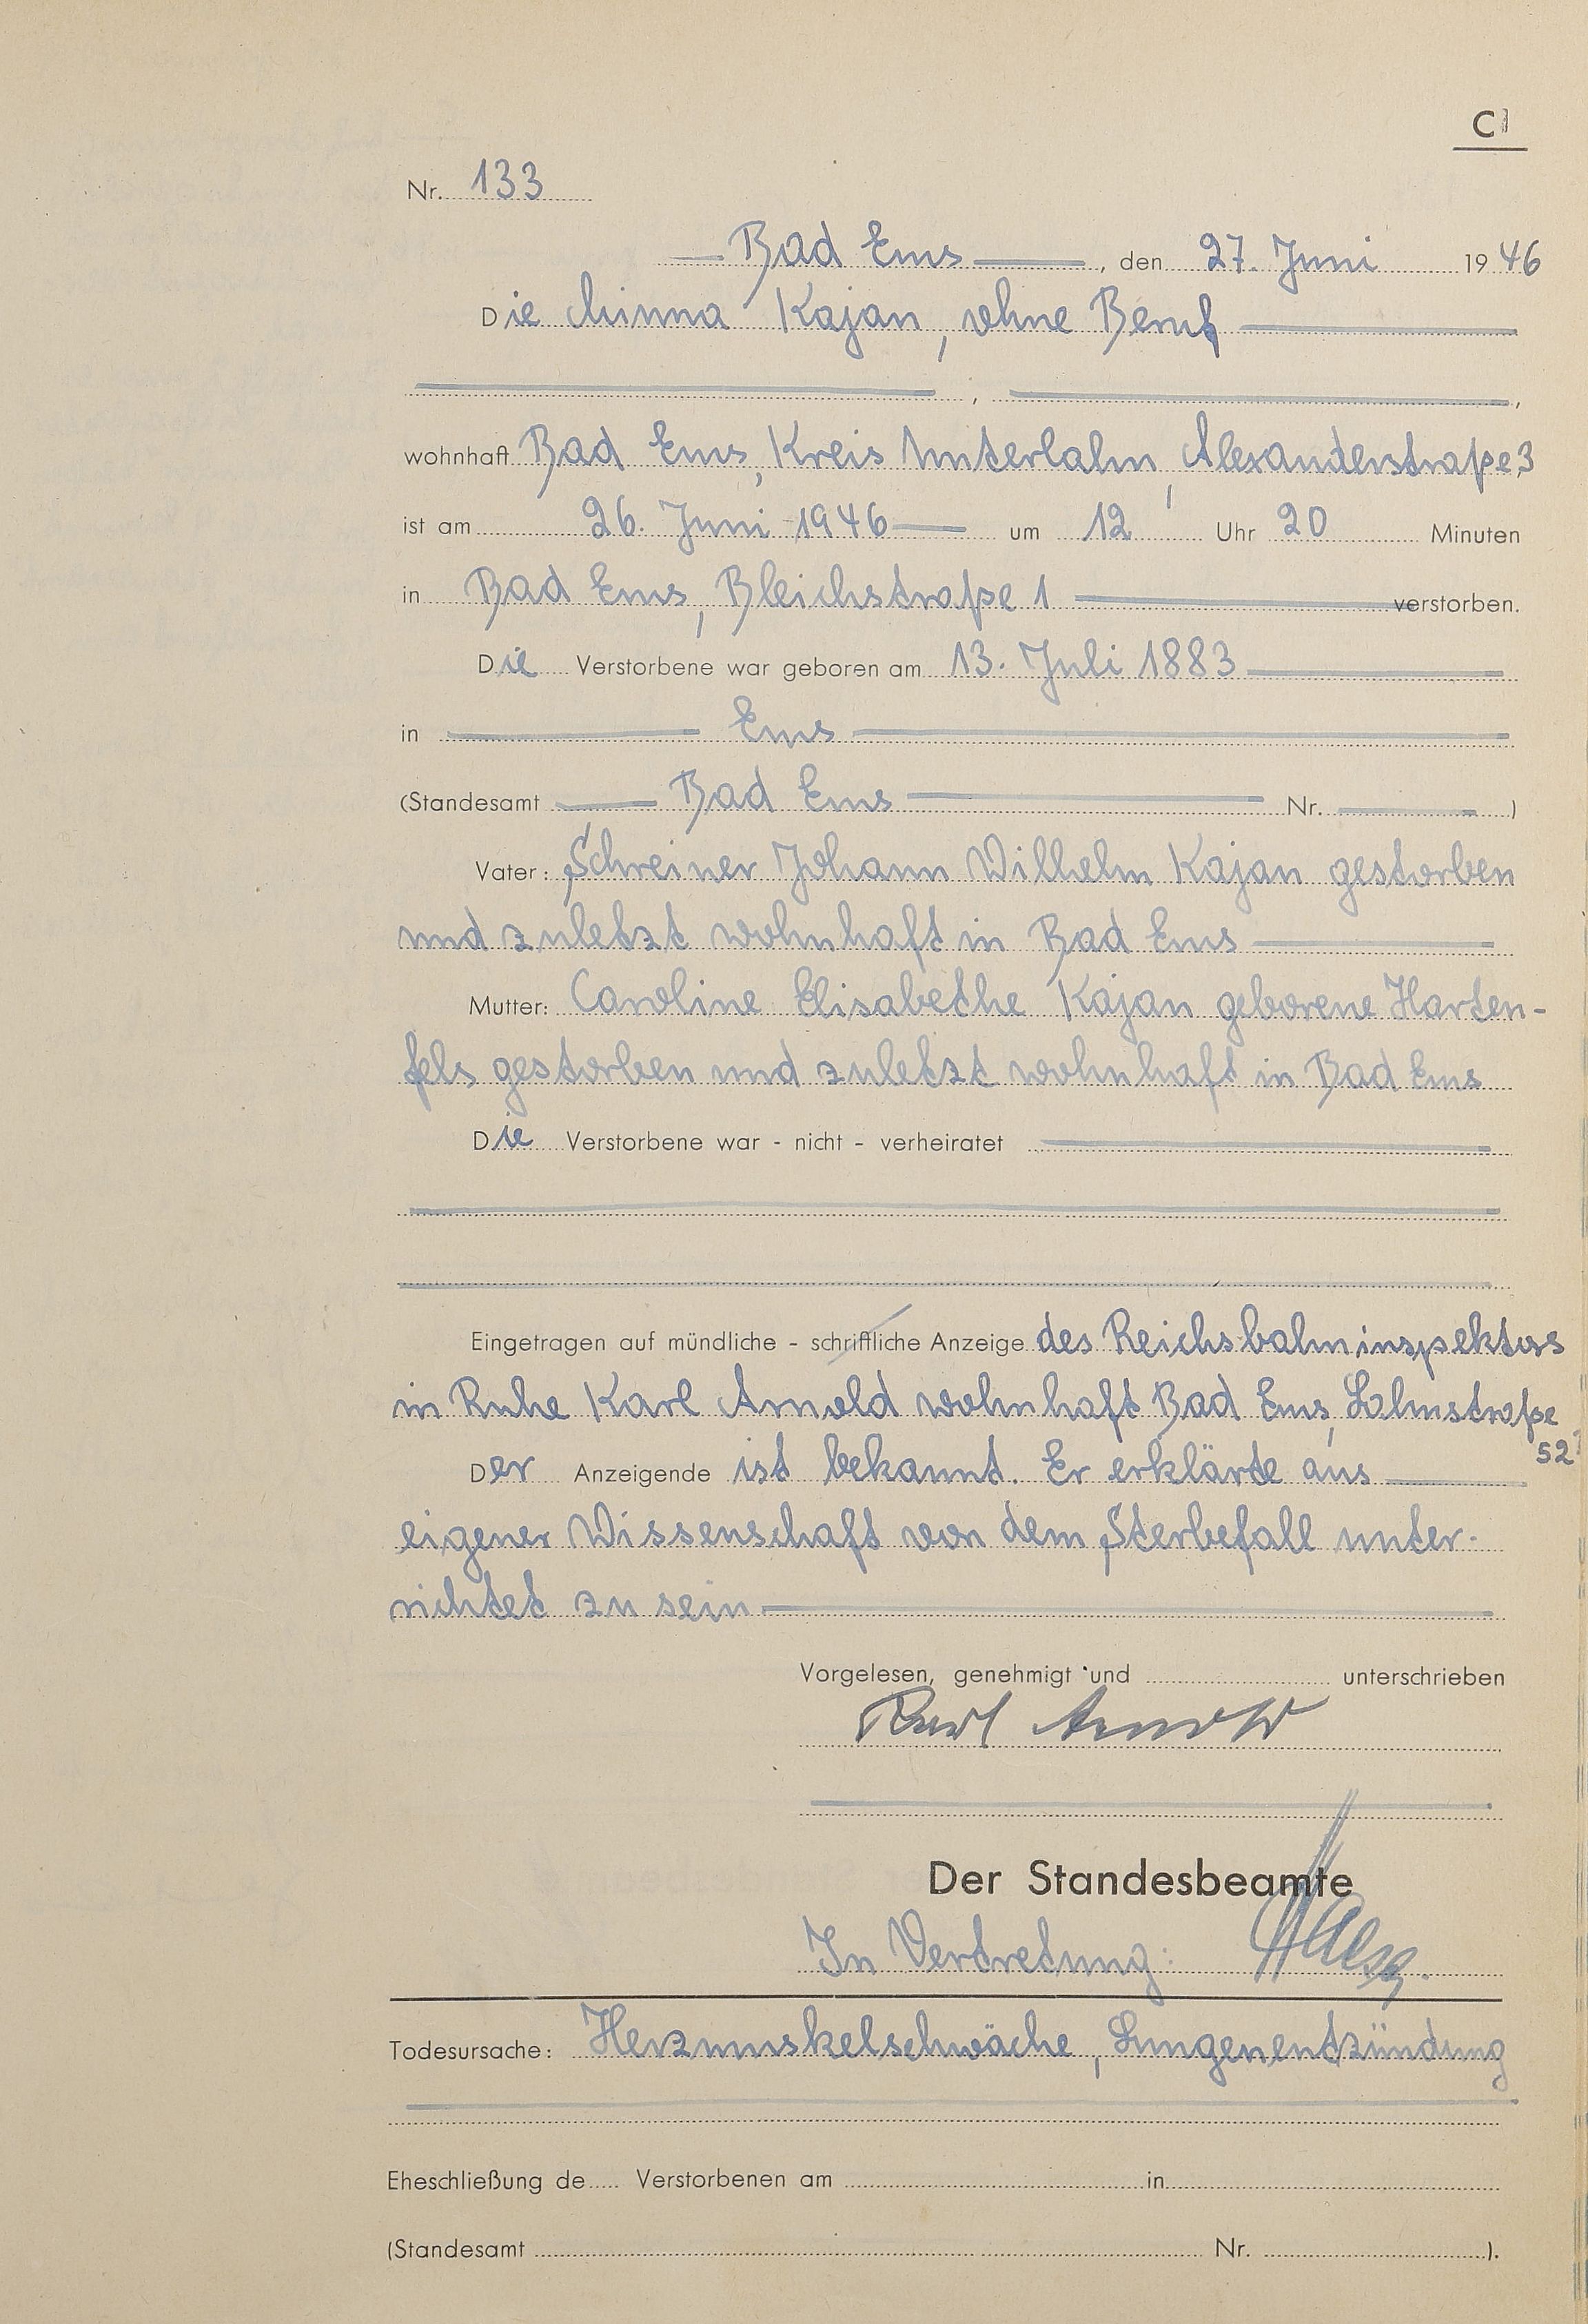 C
Nr. 133
Bad Ems, den 27. Juni 1946
Die Minna Kajan, ohne Beruf
, ,
wohnhaft Bad Ems, Kreis Unterlahn, Alexanderstraße 3
ist am 26. Juni 1946 um 12 Uhr 20 Minuten
in Bad Ems, Bleichstraße 1 verstorben.
Die Verstorbene war geboren am 13. Juli 1883
in Ems
(Standesamt Bad Ems Nr. )
Vater: Schreiner Johann Wilhelm Kajan gestorben
und zuletzt wohnhaft in Bad Ems
Mutter: Caroline Elisabethe Kajan geborene Harten-
fels gestorben und zuletzt wohnhaft in Bad Ems
Die Verstorbene war - nicht - verheiratet
Eingetragen auf mündliche - schriftliche Anzeige des Reichsbahninspektors
in Ruhe Karl Arnold wohnhaft Bad Ems, Lahnstraße
52
Der Anzeigende ist bekannt. Er erklärte aus
eigener Wissenschaft von dem Sterbefall unter-
richtet zu sein
Vorgelesen, genehmigt und unterschrieben
Karl Arnold
Der Standesbeamte
In Vertretung:
Todesursache: Herzmuskelschwäche, Lungenentzündung
Eheschließung de Verstorbenen am in
(Standesamt Nr. ).